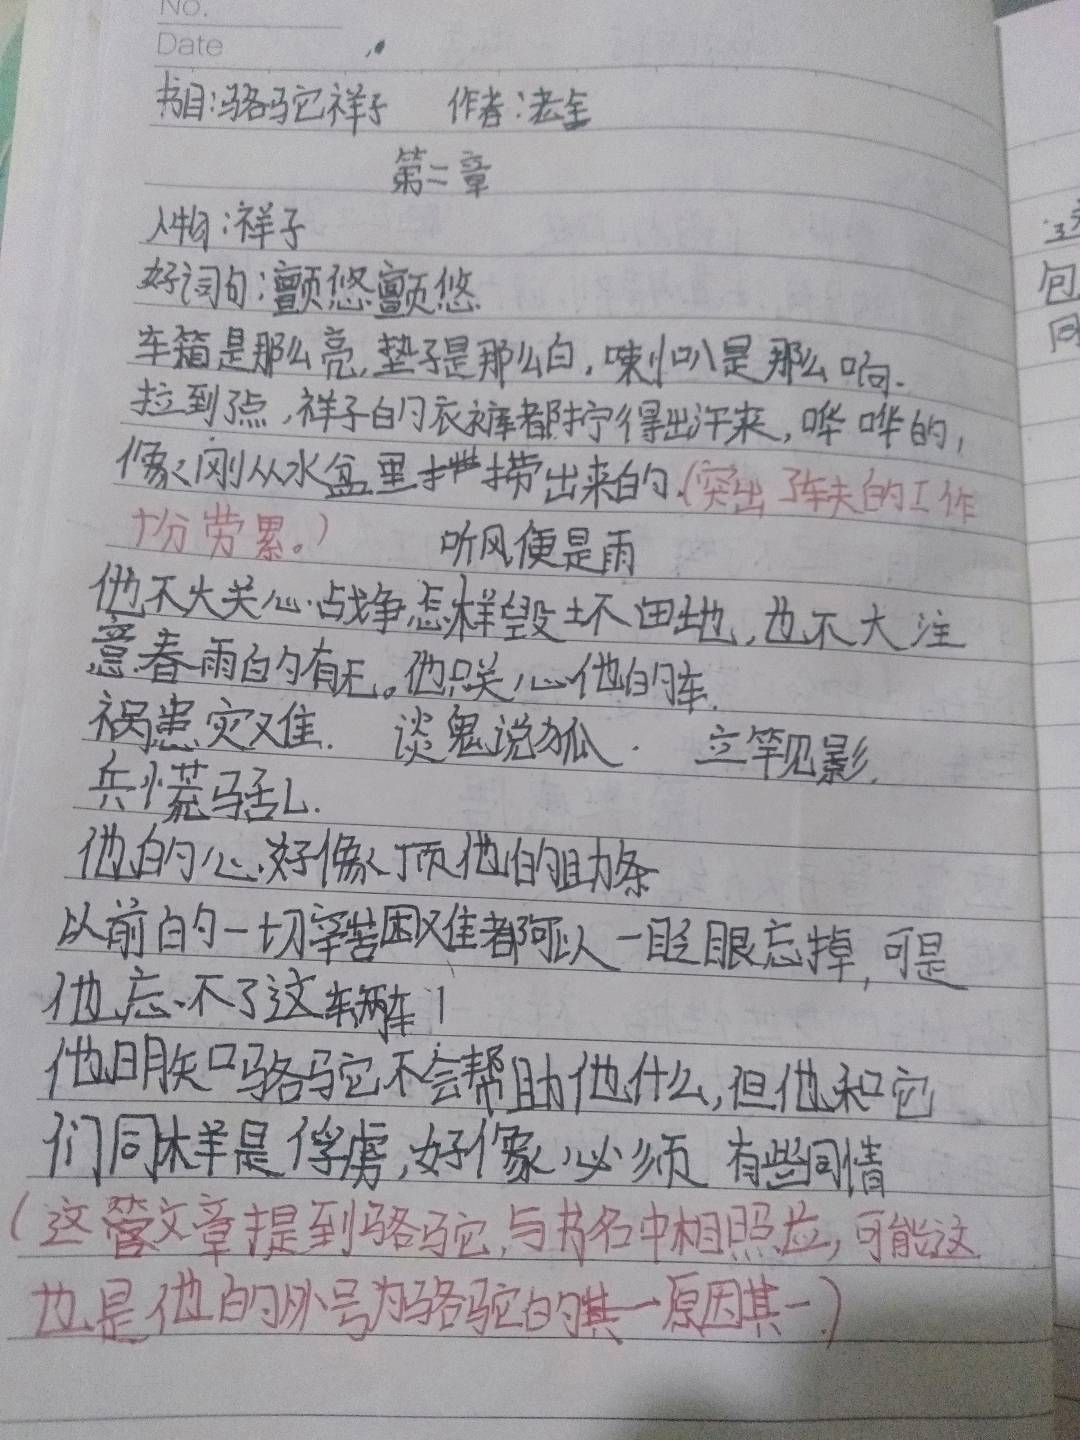 No.
Date
书目:骆驼祥子 作者:老舍
第二章
人物:祥子
好词句:颤悠颤悠
车箱是那么亮,垫子是那么白,喇叭是那么响.
拉到了点,祥子的衣裤都拧得出汗来,哗哗的,
像刚从水盆里捞出来的.(突出了车夫的工作
十分劳累。) 听风便是雨
他不大关心战争怎样毁坏田地,也不大注
意春雨的有无。他只关心他的车.
祸患灾难. 谈鬼说狐. 立竿见影.
兵慌马乱.
他的心好像顶他的肋条
以前的一切辛苦困难都可以一眨眼忘掉,可是
他忘不了这辆车!
他明知骆驼不会帮助他什么,但他和它
们同样是俘虏,好像必须有些同情
(这篇文章提到骆驼,与书名中相照应,可能这
也是他的外号为骆驼的其一原因其一.)